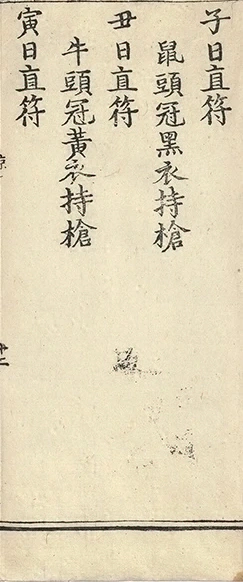 子日直符
鼠頭冠黑衣持槍
丑日直符
牛頭冠黃衣持槍
寅日直符